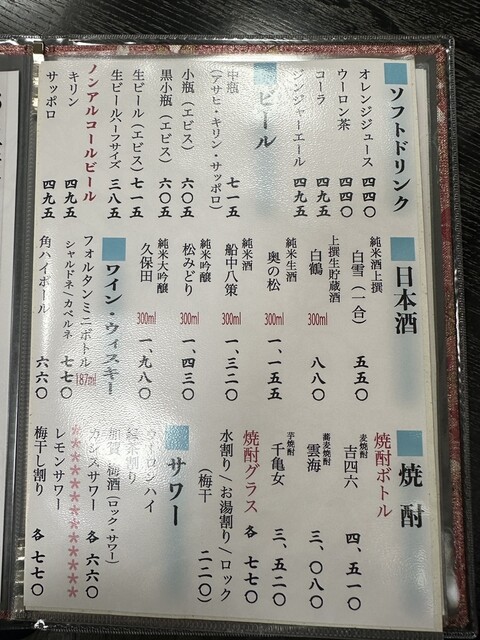 ソフトドリンク
オレンジジュース 四四〇
ウーロン茶 四四〇
コーラ 四九五
ジンジャーエール 四九五
ビール
中瓶 七一五
(アサヒ・キリン・サッポロ)
小瓶(エビス) 六〇五
黒小瓶(エビス) 六〇五
生ビール(エビス) 七一五
生ビールハーフサイズ 三八五
ノンアルコールビール
キリン 四九五
サッポロ 四九五
日本酒
純米酒上撰
白雪(一合) 五五〇
上撰生貯蔵酒
白鶴 300ml 八八〇
純米生酒
奥の松 300ml 一、一五五
純米酒
船中八策 300ml 一、三二〇
純米吟醸
松みどり 300ml 一、四三〇
純米大吟醸
久保田 300ml 一、九八〇
ワイン・ウィスキー
フォルタンミニボトル 187ml
シャルドネ/カベルネ 七七〇
角ハイボール 六六〇
焼酎
焼酎ボトル
麦焼酎
吉四六 四、五一〇
蕎麦焼酎
雲海 三、〇八〇
芋焼酎
千亀女 三、五二〇
焼酎グラス 各 七七〇
水割り/お湯割り/ロック
(梅干 二二〇)
サワー
ウーロンハイ
緑茶割り
加賀梅酒(ロック・サワー)
カシスサワー 各 六六〇
**********
レモンサワー
梅干し割り 各 七七〇